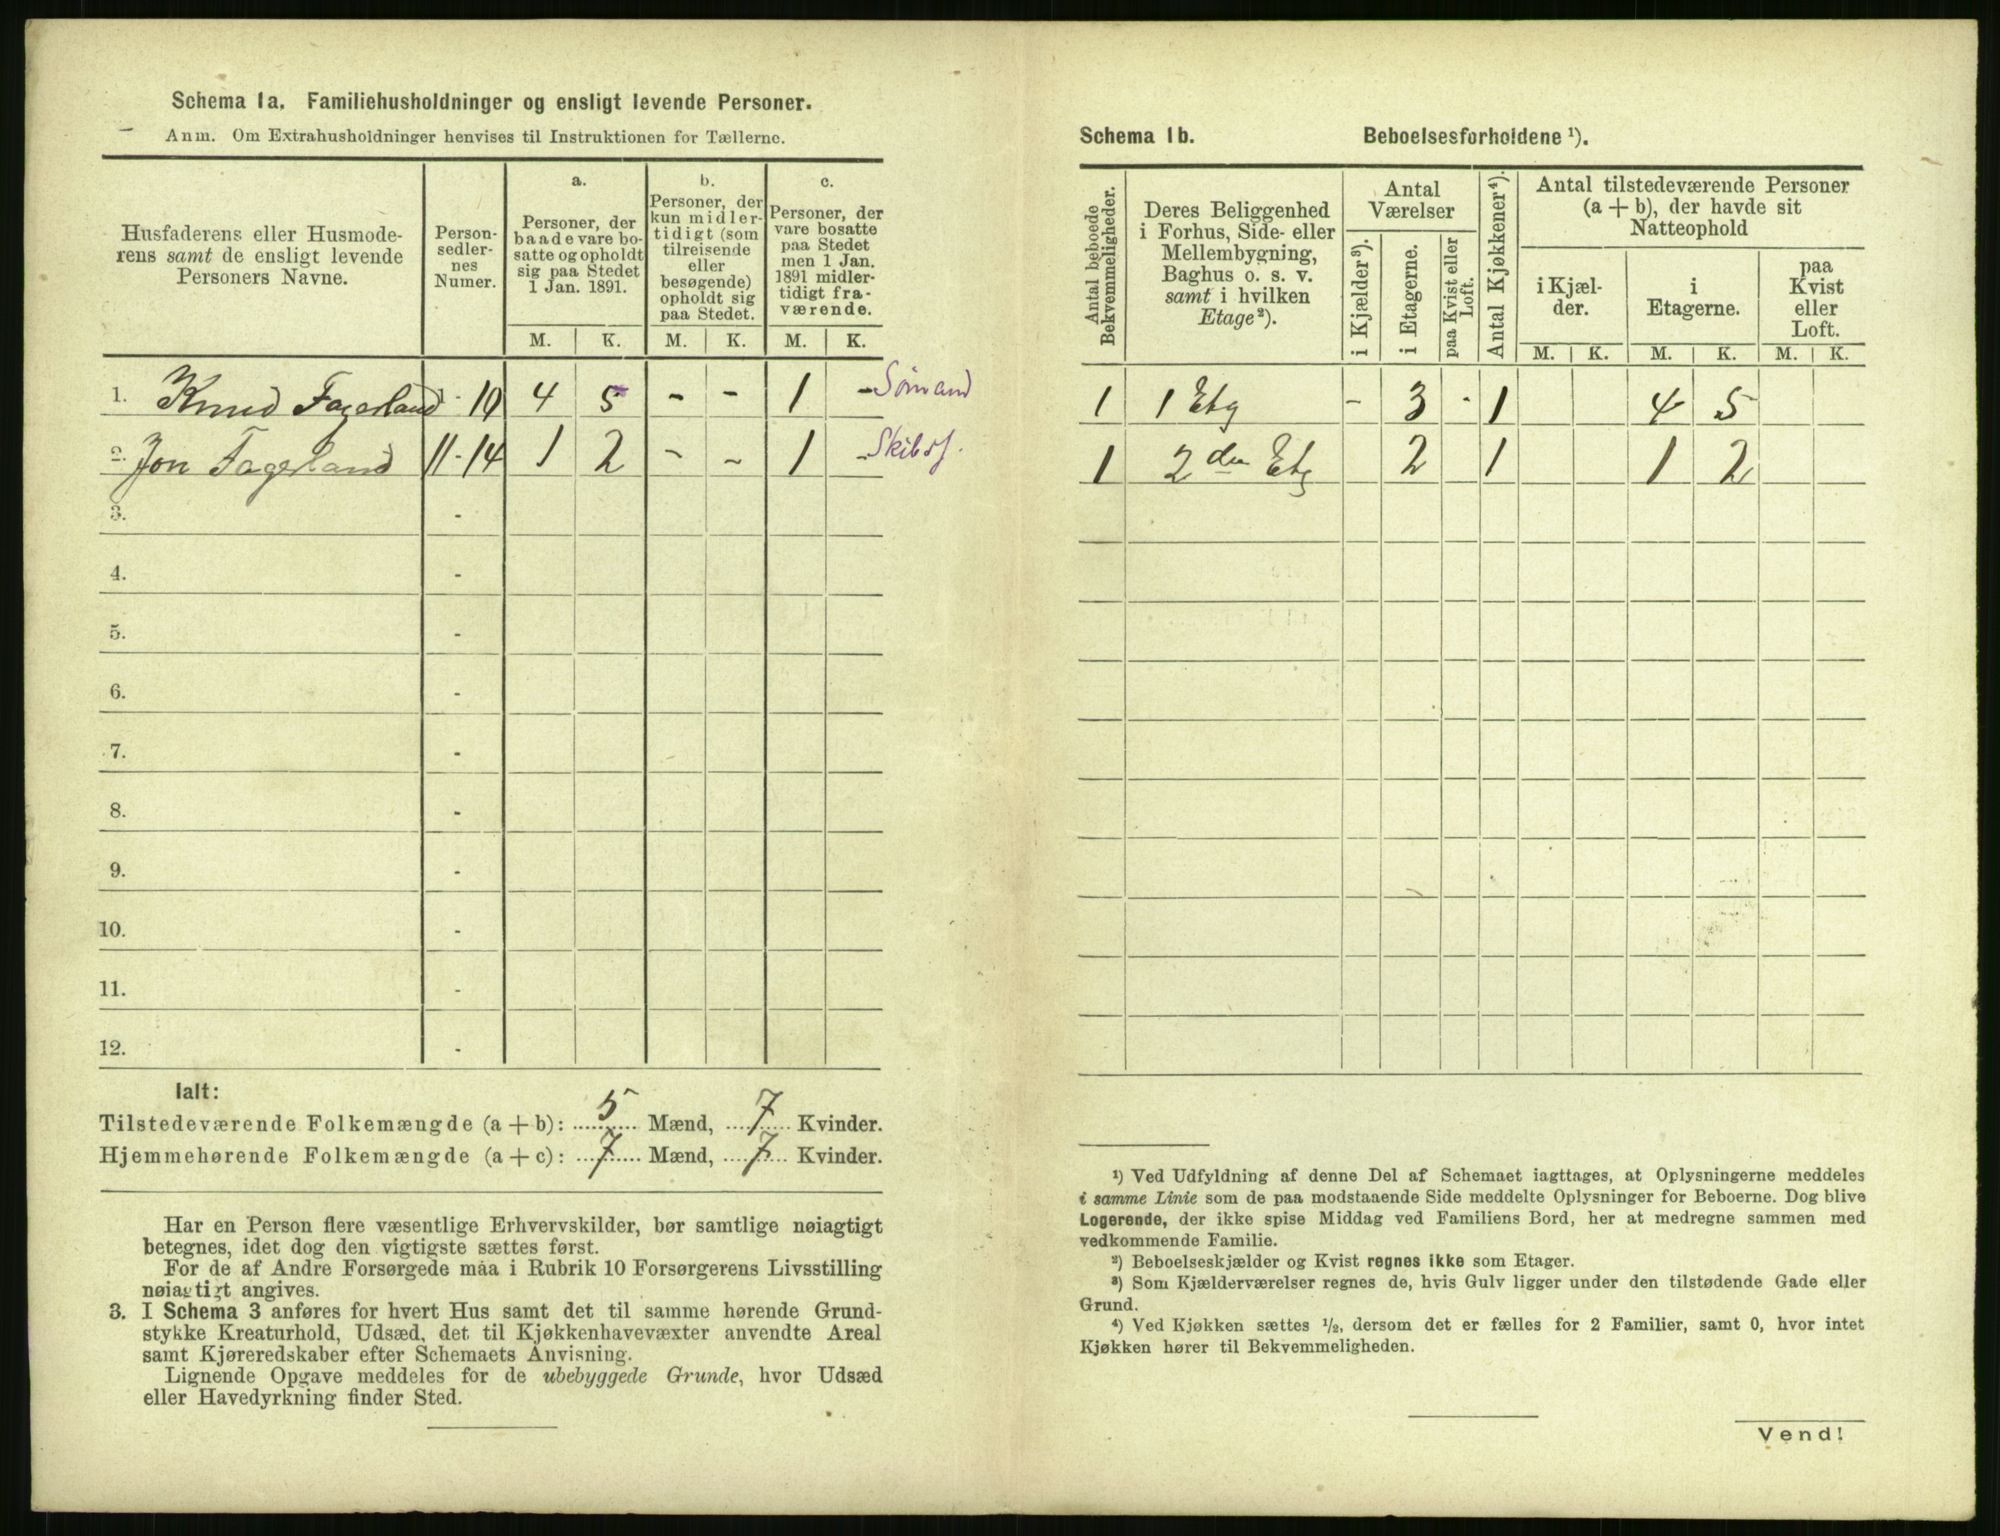 Schema 1a. Familiehusholdninger og ensligt levende Personer.
Anm. Om Extrahusholdninger henvises til Instruktionen for Tællerne.
Husfaderens eller Husmode-
rens samt de ensligt levende
Personers Navne.
Person-
sedler-
nes
Numer.
a.
Personer, der
baade vare bo-
satte og opholdt
sig paa Stedet
1 Jan. 1891.
b.
Personer, der
kun midler-
tidigt (som
tilreisende
eller
besøgende)
opholdt sig
paa Stedet.
c.
Personer, der
vare bosatte
paa Stedet
men 1 Jan.
1891 midler-
tidigt fra-
værende.
M. K. M. K. M. K.
1. Knud Fagerland - 10 4 5 - - 1 - Sømand
2. Jon Fagerland 11-14 1 2 - - 1 - Skibsf.
3. -
4. -
5. -
6. -
7. -
8. -
9. -
10. -
11. -
12. -
Ialt:
Tilstedeværende Folkemængde (a + b): 5 Mænd, 7 Kvinder.
Hjemmehørende Folkemængde (a + c): 7 Mænd, 7 Kvinder.
Har en Person flere væsentlige Erhvervskilder, bør samtlige nøiagtigt
betegnes, idet dog den vigtigste sættes først.
For de af Andre Forsørgede maa i Rubrik 10 Forsørgerens Livsstilling
nøiagtigt angives.
3. I Schema 3 anføres for hvert Hus samt det til samme hørende Grund-
stykke Kreaturhold, Udsæd, det til Kjøkkenhavevæxter anvendte Areal
samt Kjøreredskaber efter Schemaets Anvisning.
Lignende Opgave meddeles for de ubebyggede Grunde, hvor Udsæd
eller Havedyrkning finder Sted.
Schema 1b. Beboelsesforholdene ¹).
Antal beboede
Bekvemmeligheder.
Deres Beliggenhed
i Forhus, Side- eller
Mellembygning,
Baghus o. s. v.
samt i hvilken
Etage²).
Antal
Værelser
i Kjælder³).
i Etagerne.
paa Kvist eller
Loft.
Antal Kjøkkener⁴).
Antal tilstedeværende Personer
(a + b), der havde sit
Natteophold
i Kjæl-
der.
i
Etagerne.
paa
Kvist
eller
Loft.
M. K. M. K. M. K.
1 1 Etg - 3 - 1 4 5
1 2den Etg 2 1 1 2
¹) Ved Udfyldning af denne Del af Schemaet iagttages, at Oplysningerne meddeles
i samme Linie som de paa modstaaende Side meddelte Oplysninger for Beboerne. Dog blive
Logerende, der ikke spise Middag ved Familiens Bord, her at medregne sammen med
vedkommende Familie.
²) Beboelseskjælder og Kvist regnes ikke som Etager.
³) Som Kjælderværelser regnes de, hvis Gulv ligger under den tilstødende Gade eller
Grund.
⁴) Ved Kjøkken sættes ½, dersom det er fælles for 2 Familier, samt 0, hvor intet
Kjøkken hører til Bekvemmeligheden.
Vend!